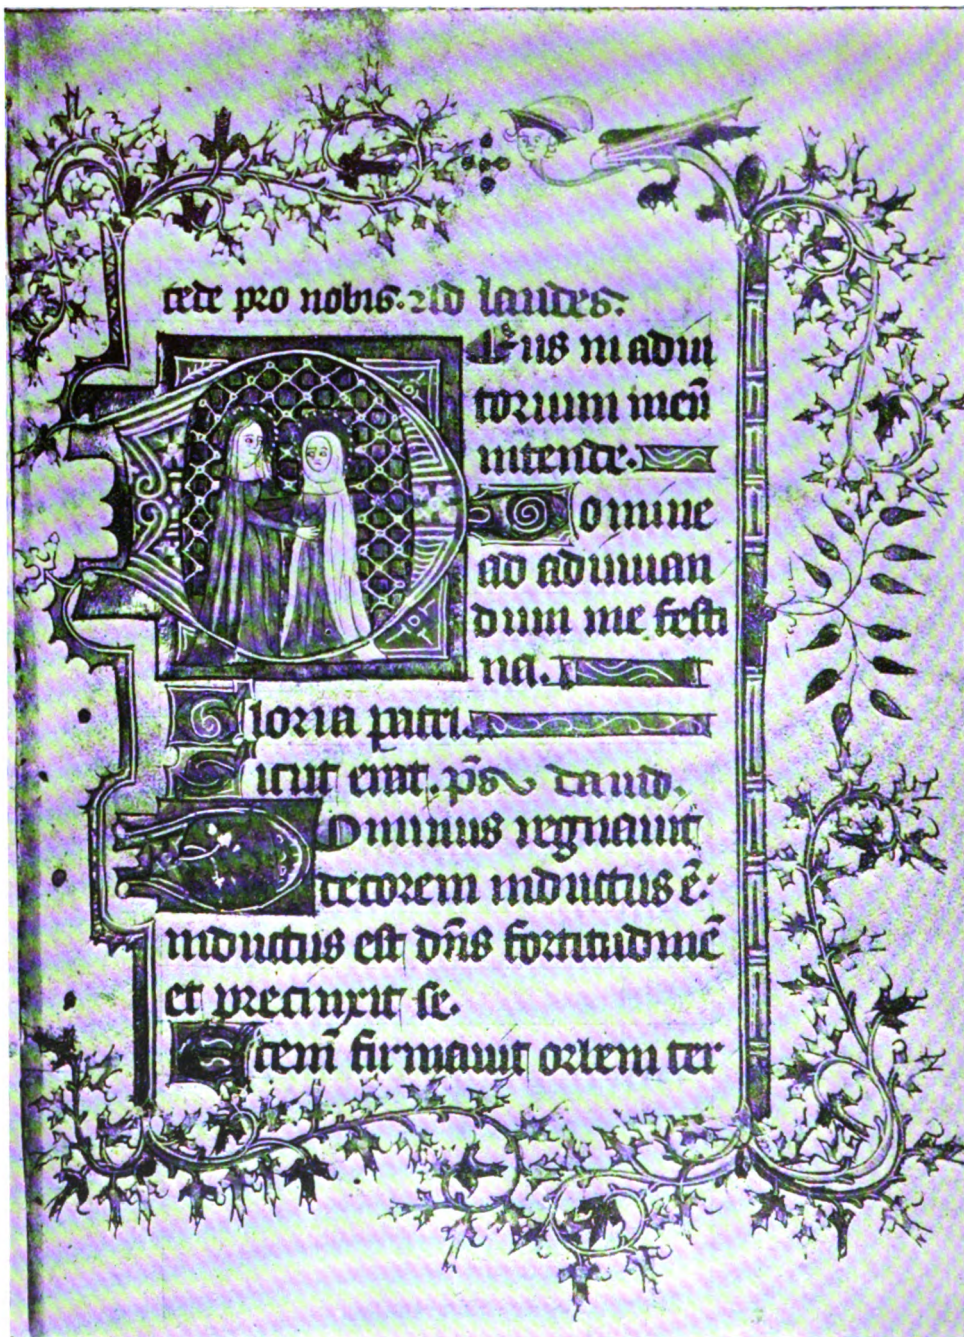 cede pro nobis. Ad laudes.
Eus in adiu
torium meū
intende.
Domine
ad adiuuan
dum me festi
na.
Gloria patri.
Sicut erat. p̄s dauid.
Dominus regnauit
decorem indutus ē.
indutus est dn̄s fortitudinē
et precinxit se.
Etem̄ firmauit orbem ter